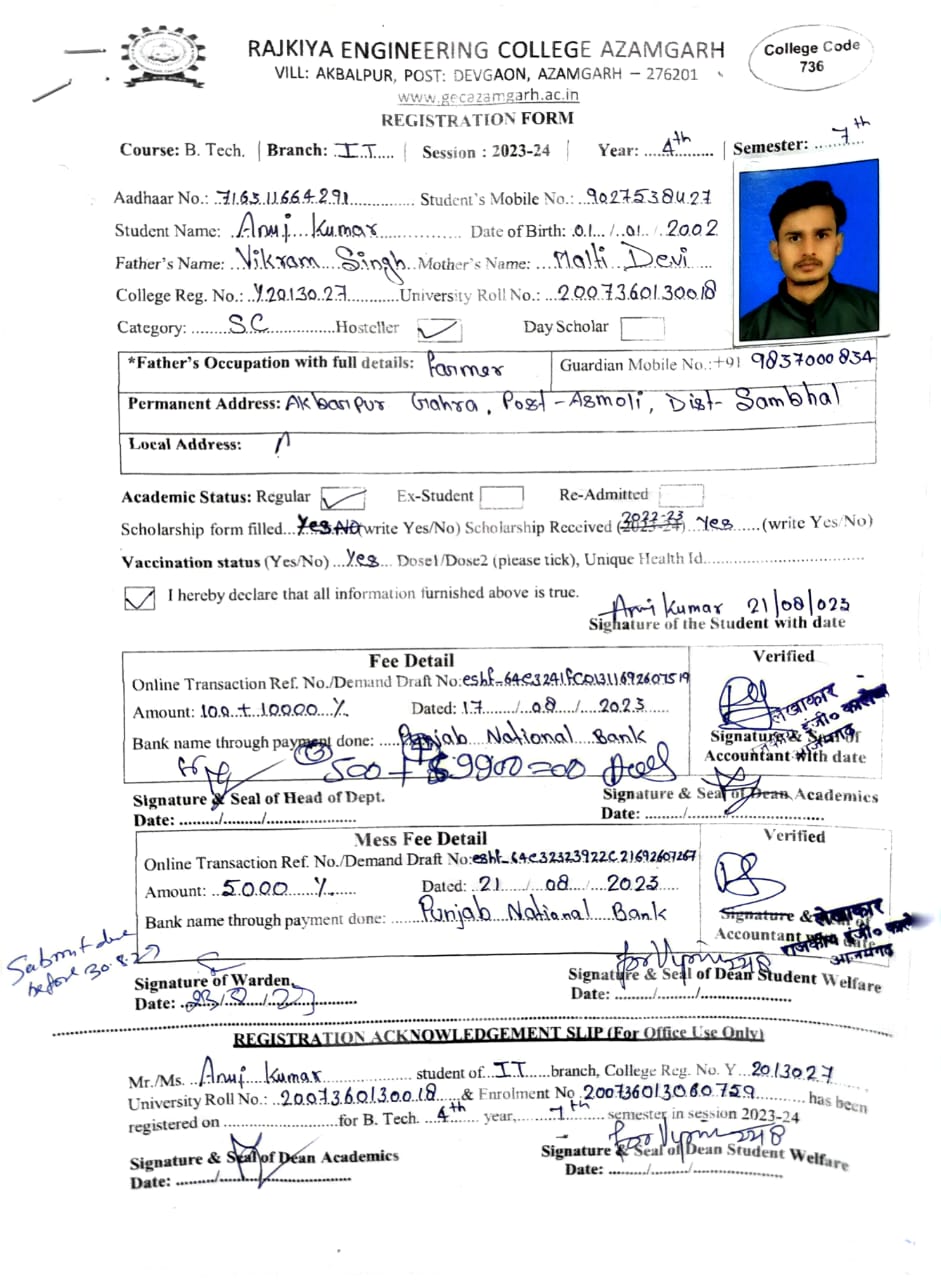 RAJKIYA ENGINEERING COLLEGE AZAMGARH
College Code
736
VILL: AKBALPUR, POST: DEVGAON, AZAMGARH – 276201
www.gecazamgarh.ac.in
REGISTRATION FORM
Course: B. Tech. | Branch: ..IT.... | Session : 2023-24 | Year: ....4th......... | Semester: ......7th
Aadhaar No.: 716311664291............... Student's Mobile No.: 9027538427
Student Name: .Anuj...Kumar................. Date of Birth: .01.../..01.../.2002
Father's Name: .Vikram...Singh. Mother's Name: ....Malti Devi....
College Reg. No.: Y.20130.27............University Roll No.: .2007360130018
Category: ........SC................Hosteller ✓ Day Scholar
*Father's Occupation with full details: Farmer Guardian Mobile No.:+91 9837000834
Permanent Address: Akbaripur Gahra, Post-Asmoli, Dist- Sambhal
Local Address:
Academic Status: Regular ✓ Ex-Student Re-Admitted
Scholarship form filled...Yes NO(write Yes/No) Scholarship Received (2022-23 2023-24) Yes ......(write Yes/No)
Vaccination status (Yes/No) ...Yes... Dose1/Dose2 (please tick), Unique Health Id....................................
✓ I hereby declare that all information furnished above is true.
Anuj Kumar 21/08/023
Signature of the Student with date
Fee Detail
Verified
Online Transaction Ref. No./Demand Draft No:
Amount: 100 + 10000 ./. Dated: 17....../...08..../....2023
Bank name through payment done: ....Punjab National Bank
500 + 9900=00
लेखाकार
राजकीय इंजी० कालेज
आजमगढ़
Signature & Seal of
Accountant with date
Signature & Seal of Head of Dept.
Date: ........./........./.....................
Signature & Seal of Dean Academics
Date: ........./.................................
Mess Fee Detail
Verified
Online Transaction Ref. No./Demand Draft No:
Amount: ..5000 ./...... Dated: ..21...../...08..../....2023
Bank name through payment done: ......Punjab National Bank
Signature & Seal of
Accountant with date
लेखाकार
राजकीय इंजी० कालेज
आजमगढ़
Submit due
before 30.8.23
Signature of Warden
Date:
Signature & Seal of Dean Student Welfare
Date: ........./........./.....................
REGISTRATION ACKNOWLEDGEMENT SLIP (For Office Use Only)
Mr./Ms. .Anuj...Kumar..................... student of .IT......branch, College Reg. No. Y...2013027
University Roll No.: .2007360130018......& Enrolment No 200736013060759......... has been
registered on .....................for B. Tech. ..4th.... year,.....7th.. semester in session 2023-24
Signature & Seal of Dean Academics
Date: ........./.................................
Signature & Seal of Dean Student Welfare
Date: ........./........./.....................